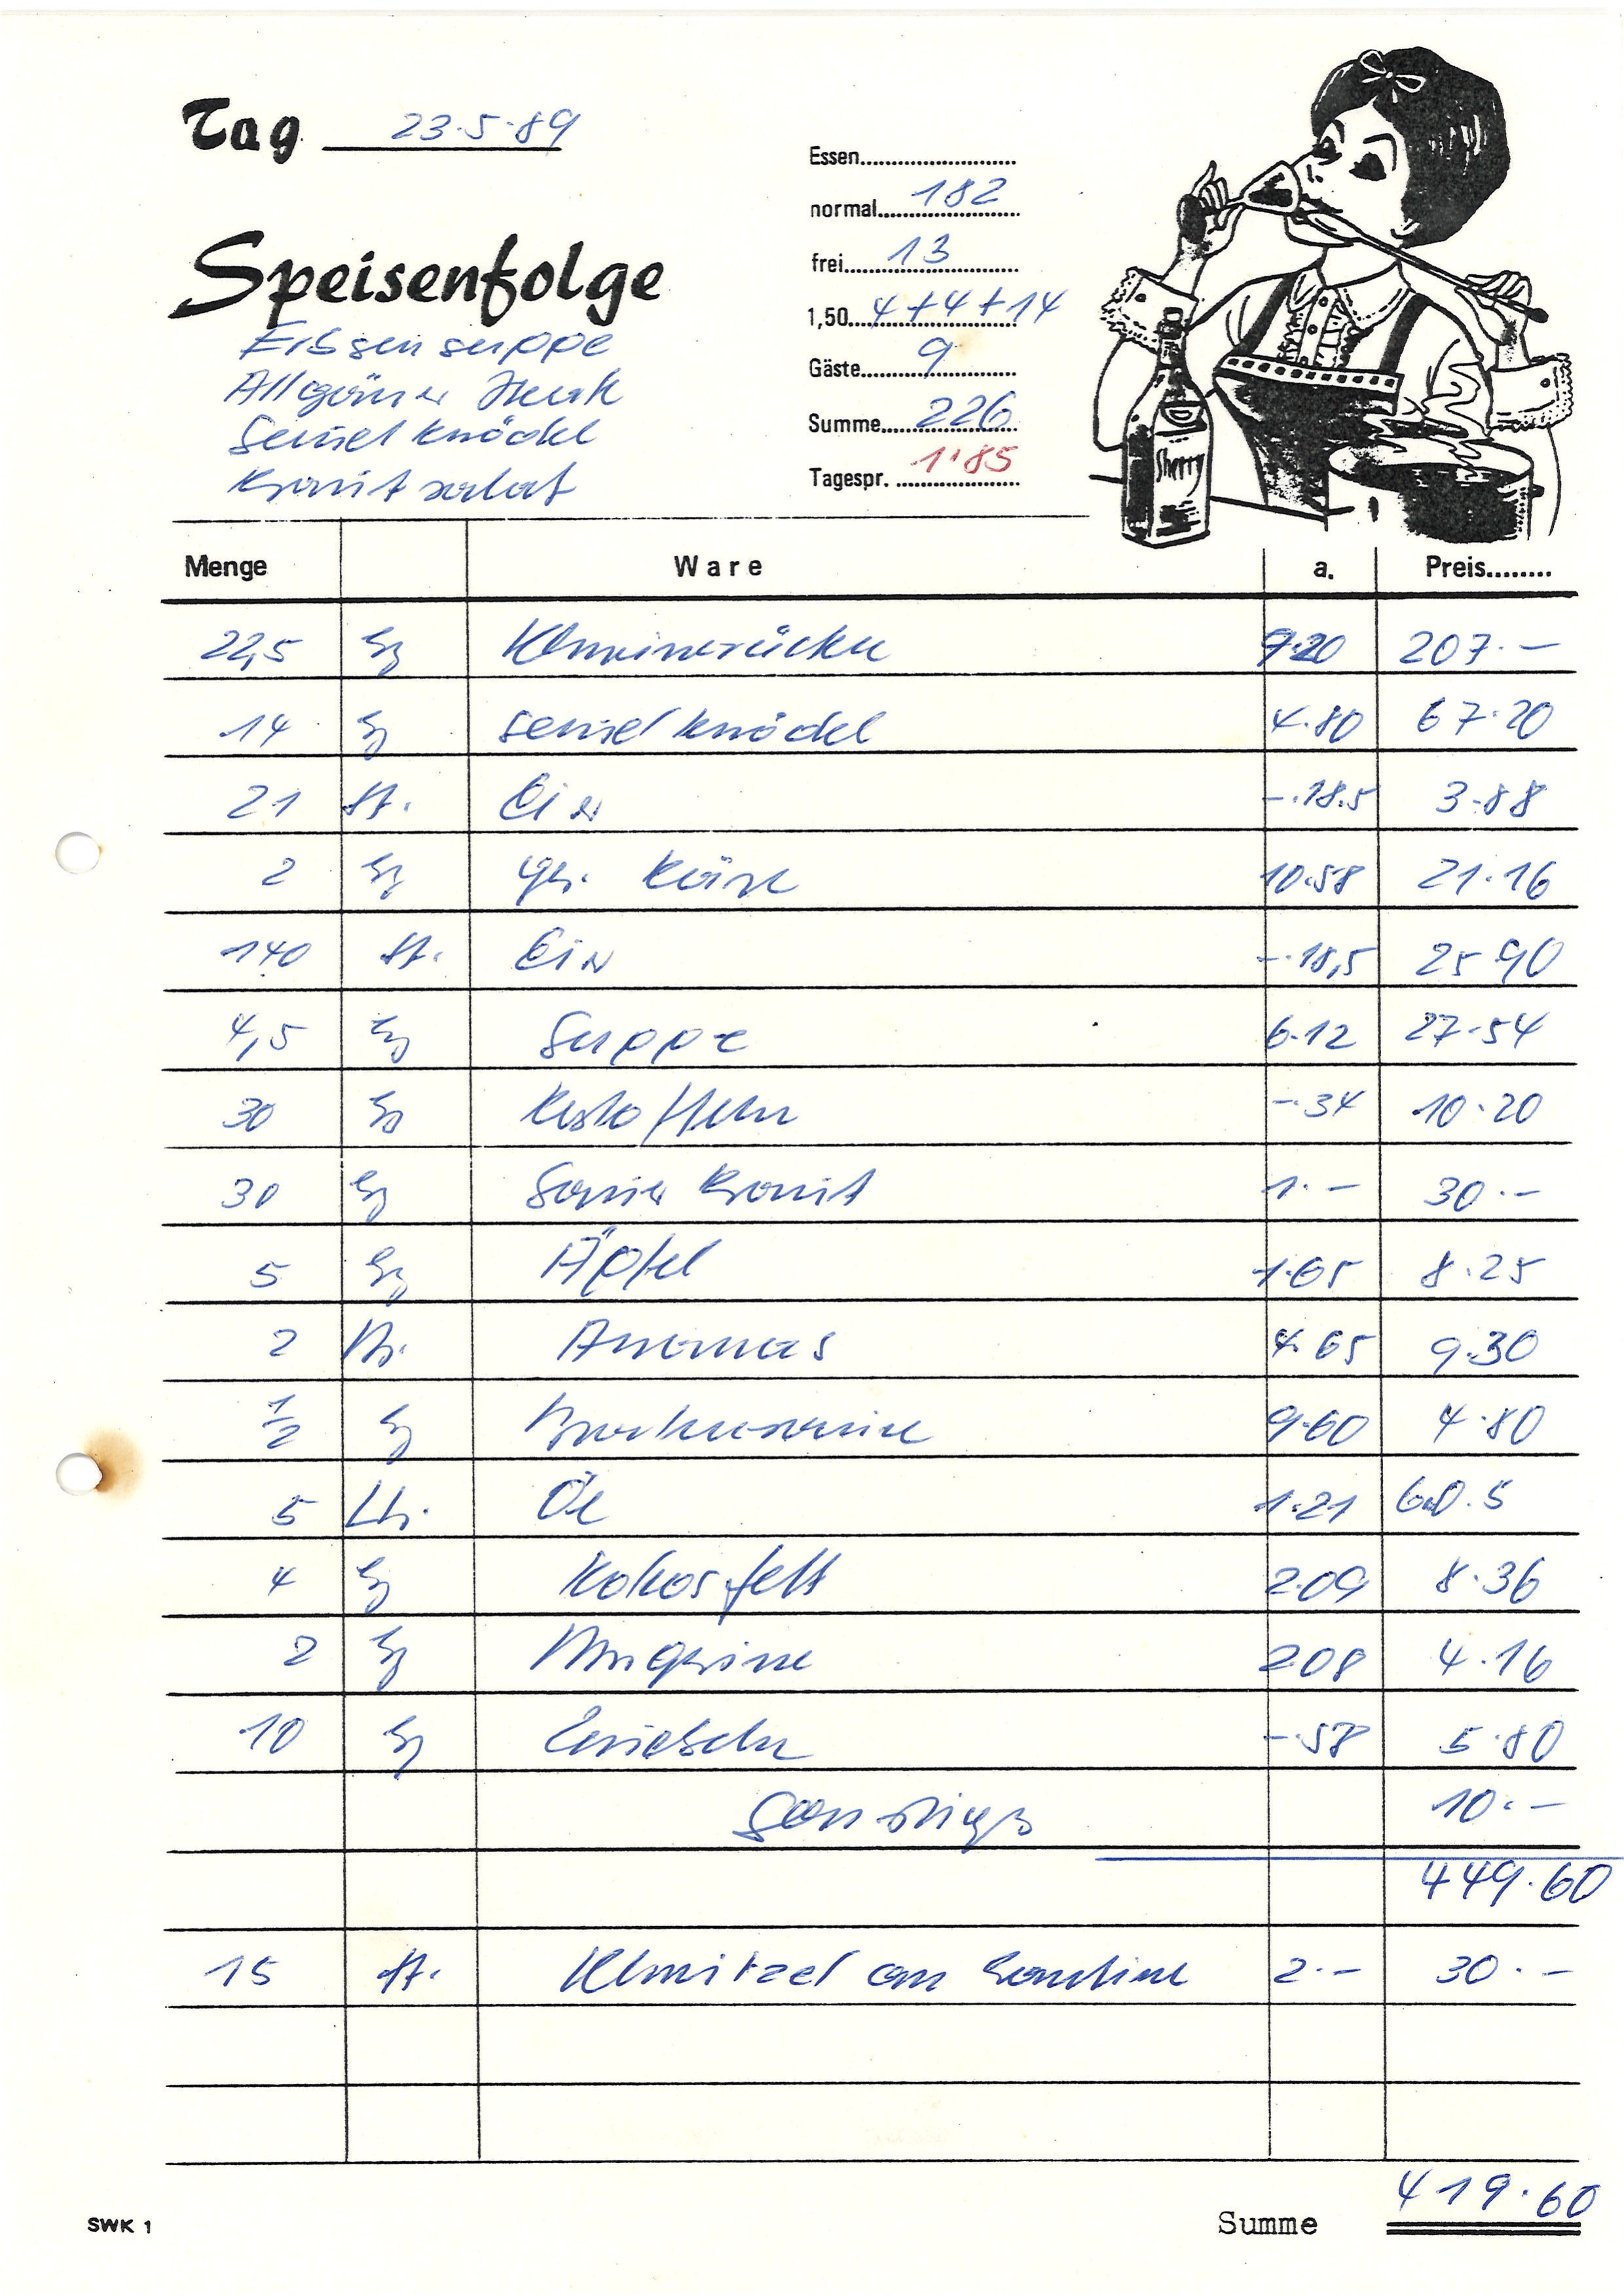 Tag 23.5.89
Essen
normal 182
frei 13
1,50 4+4+14
Gäste 9
Summe 226
Tagespr. 1'85
Speisenfolge
Erbsensuppe
Allgäuer
Semmelknödel
Krautsalat
Sherry
Menge Ware a. Preis
22,5 Kg Schweinerücken 9.20 207.-
14 Kg Semmelknödel 4.80 67.20
21 St. Eier -.18.5 3.88
2 Kg ger. Käse 10.58 21.16
140 St. Eier -.18,5 25.90
4,5 Kg Suppe 6.12 27.54
30 Kg Kartoffeln -.34 10.20
30 Kg Sauerkraut 1.- 30.-
5 Kg Äpfel 1.65 8.25
2 Ananas 4.65 9.30
1/2 Kg 9.60 4.80
5 Ltr. Öl 1.21 60.5
4 Kg Kokosfett 2.09 8.36
2 Kg Margarine 2.08 4.16
10 Kg Zwiebeln -.58 5.80
Sonstiges 10.-
449.60
15 St. Schnitzel an Kantine 2.- 30.-
419.60
SWK 1 Summe